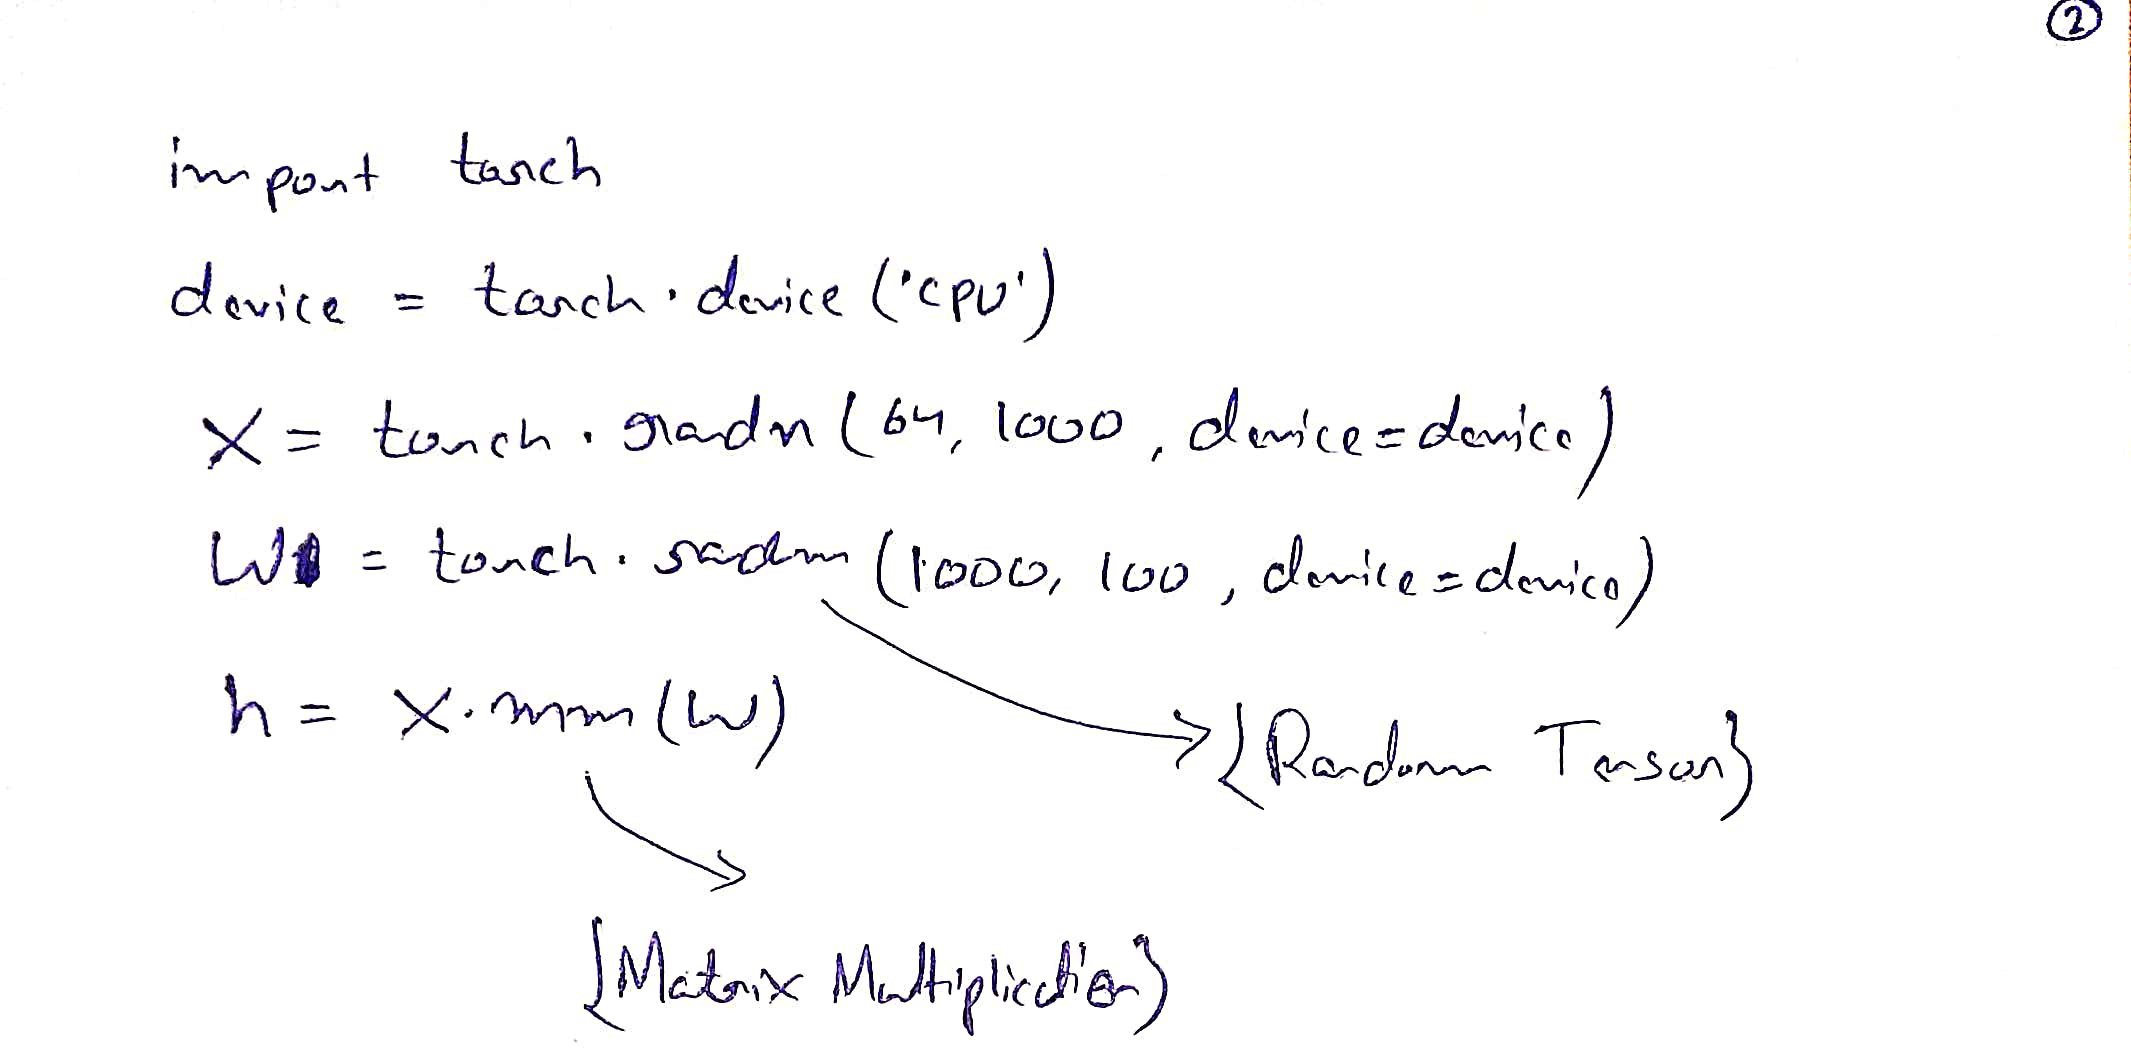 ②
import torch
device = torch.device('cpu')
X = torch.radn(64, 1000, device=device)
W = torch.radn(1000, 100, device=device)
h = X.mm(W)
{Random Tensor}
{Matrix Multiplication}